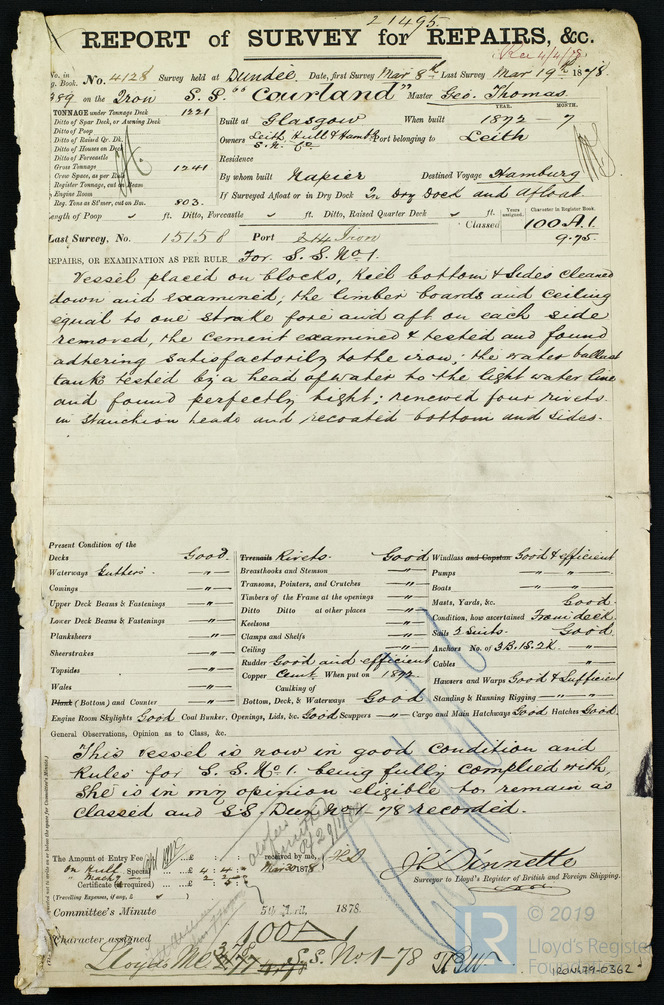 21495.
REPORT of SURVEY for REPAIRS, &c.
Rec 4/4/78
No. in Reg. Book. No. 4128 Survey held at Dundee. Date, first Survey Mar 8th Last Survey Mar 19th 1878.
389 on the Iron S.S. "Courland" Master Geo. Thomas
TONNAGE under Tonnage Deck 1221
Ditto of Spar Deck, or Awning Deck
Ditto of Poop
Ditto of Raised Qr. Dk.
Ditto of Houses on Deck
Ditto of Forecastle
Gross Tonnage 1241
Crew Space, as per Rule
Register Tonnage, cut on Beam
Engine Room
Reg. Tons as St'mer, cut on Bm. 803.
YEAR. MONTH.
Built at Glasgow When built 1872 - 7
Owners Leith, Hull & Hambg S. N. Co Port belonging to Leith
Residence
By whom built Napier Destined Voyage Hamburg
If Surveyed Afloat or in Dry Dock In Dry Dock and Afloat
Length of Poop ft. Ditto, Forecastle ft. Ditto, Raised Quarter Deck ft.
Classed Years assigned. Character in Register Book. 100 A.1.
9.75.
Last Survey, No. 15158 Port 214 Iron
REPAIRS, OR EXAMINATION AS PER RULE For S.S. No 1.
Vessel placed on blocks, Keel bottom & sides cleaned
down and examined; the limber boards and ceiling
equal to one strake fore and aft on each side
removed, the cement examined & tested and found
adhering satisfactorily to the iron; the water ballast
tank tested by a head of water to the light water line
and found perfectly tight; renewed four rivets
in stanchion heads and recoated bottom and sides.
Present Condition of the
Decks Good.
Waterways Gutters "
Comings "
Upper Deck Beams & Fastenings "
Lower Deck Beams & Fastenings "
Planksheers "
Sheerstrakes "
Topsides "
Wales "
Plank (Bottom) and Counter "
Treenails Rivets. Good
Breasthooks and Stemson "
Transoms, Pointers, and Crutches "
Timbers of the Frame at the openings "
Ditto Ditto at other places "
Keelsons "
Clamps and Shelfs "
Ceiling "
Rudder Good and efficient
Copper Cemt. When put on 1872
Caulking of
Bottom, Deck, & Waterways Good
Windlass and Capstan Good & efficient
Pumps " "
Boats " "
Masts, Yards, &c. Good.
Condition, how ascertained From deck
Sails 2 Suits. Good
Anchors No. of 3B.1S.2K. "
Cables "
Hawsers and Warps Good & Sufficient
Standing & Running Rigging " "
Engine Room Skylights Good Coal Bunker, Openings, Lids, &c. Good Scuppers " Cargo and Main Hatchways Good Hatches Good.
General Observations, Opinion as to Class, &c.
This vessel is now in good condition and
Rules for S.S. No 1. being fully complied with,
She is in my opinion eligible to remain as
Classed and S.S. Dun. No 1-78 recorded.
The Amount of Entry Fee ... £ : : received by me,
On Hull Special ... £ 4 : 4 :
" Machy 2 : 2 : Mar 30 1878
Certificate (if required) ... £ :
(Travelling Expenses, if any, £ )
Surveyor to Lloyd's Register of British and Foreign Shipping.
Committee's Minute 5th April, 1878.
Character assigned 100 A 1
Lloyds MC S.S. No 1-78
LR © 2019
Lloyd's Register
Foundation
IRON679-0362